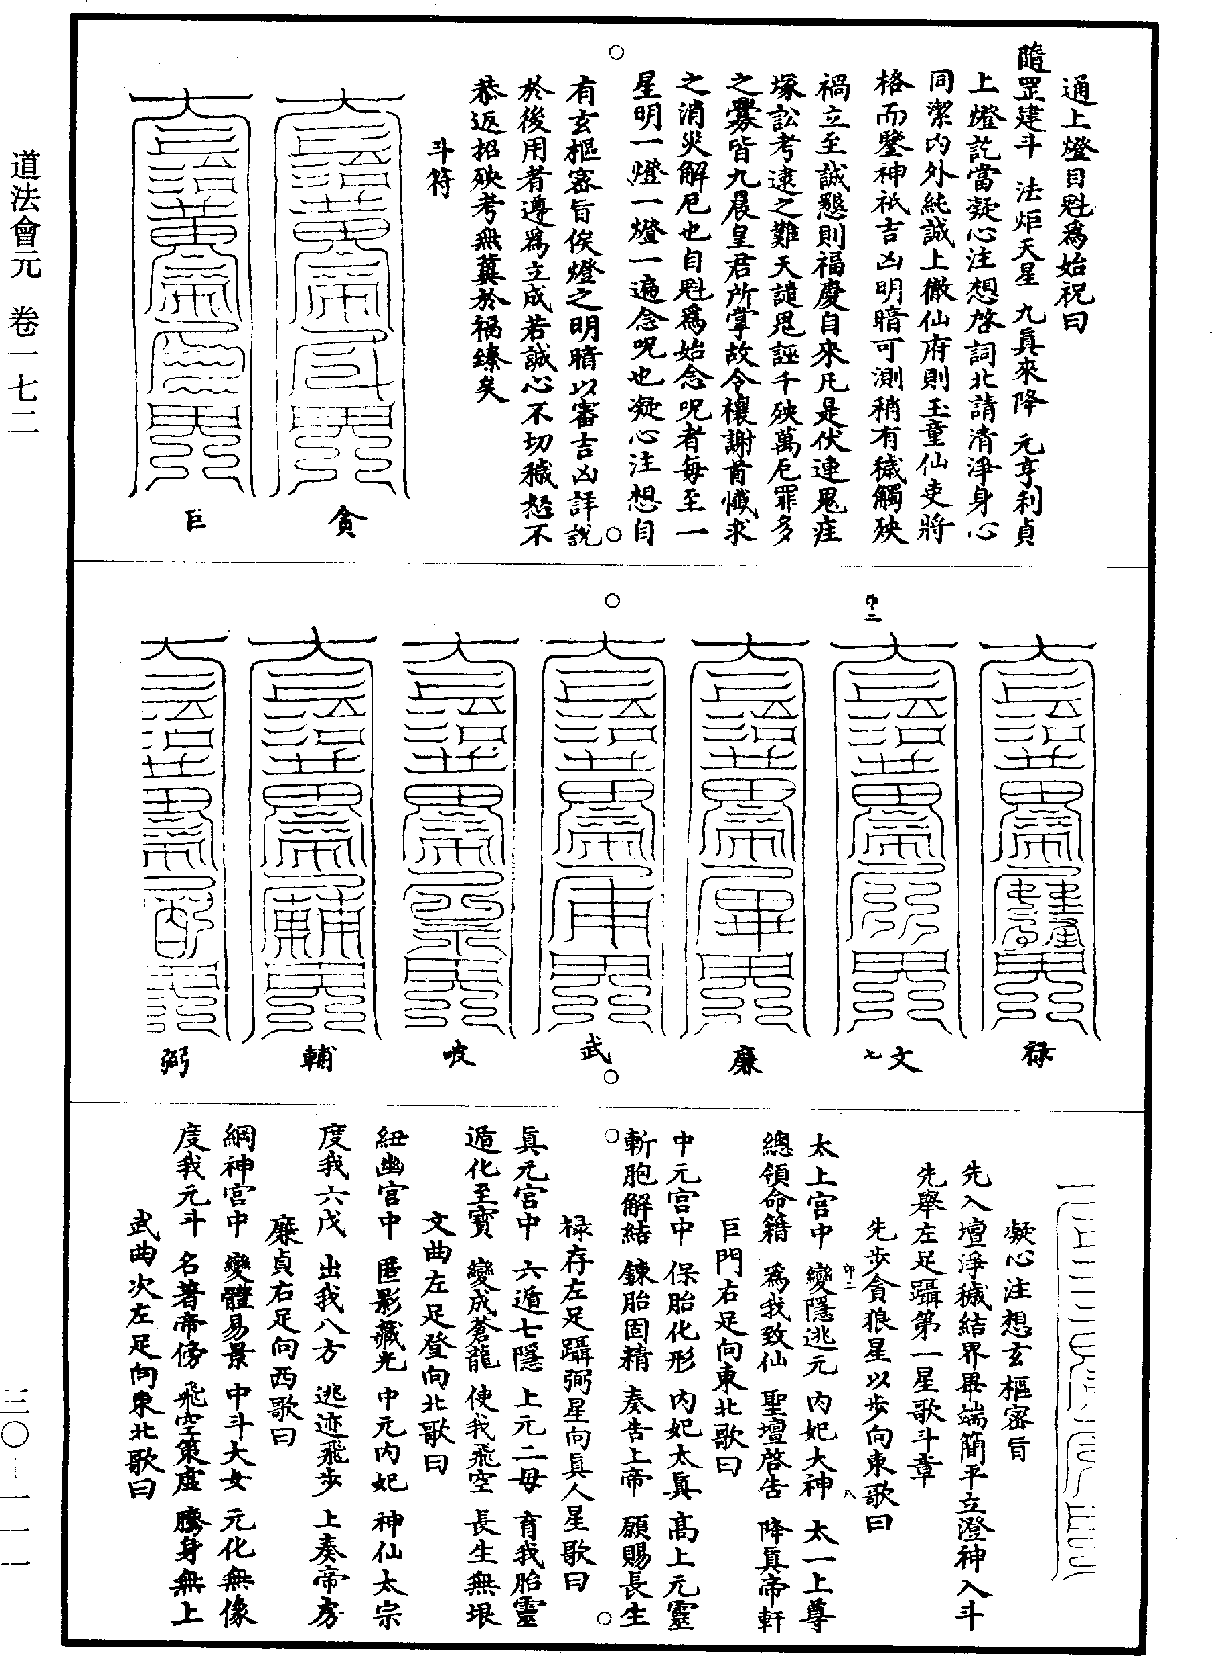 道法會元　卷一七二
三〇—一一一
通上燈目魁爲始祝曰
隨罡建斗　法炬天星　九眞來降　元亨利貞
上燈訖當凝心注想啓詞北請清淨身心
同潔內外純誠上徹仙府則玉童仙吏將
格而鑒神祇吉凶明暗可測稍有穢觸殃
禍立至誠懇則福慶自來凡是伏連鬼疰
塚訟考逮之難天譴鬼誣千殃萬厄罪多
之釁皆九晨皇君所掌故令禳謝首懺求
之消災解厄也自魁爲始念呪者每至一
星明一燈一燈一遍念呪也凝心注想自
有玄樞審旨俟燈之明暗以審吉凶詳說
於後用者遵爲立成若誠心不切穢愆不
恭返招殃考無冀於福臻矣
斗符
貪
巨
祿
文
七
廉
武
岐
輔
弼
凝心注想玄樞審旨
先入壇淨穢結界畢端簡平立澄神入斗
先舉左足躡第一星歌斗章
先步貪狼星以步向東歌曰
太上宮中　變隱逃元　內妃大神　太一上尊
八
總領命籍　爲我致仙　聖壇啓告　降眞帝軒
巨門右足向東北歌曰
中元宮中　保胎化形　內妃太眞　高上元靈
斬胞解結　鍊胎固精　奏告上帝　願賜長生
祿存左足躡弼星向眞人星歌曰
眞元宮中　六遁七隱　上元二母　育我胎靈
遁化至寶　變成蒼龍　使我飛空　長生無垠
文曲左足登向北歌曰
紐幽宮中　匿影藏光　中元內妃　神仙太宗
度我六戊　出我八方　逃迹飛步　上奏帝房
廉貞右足向西歌曰
綱神宮中　變體易景　中斗大女　元化無像
度我元斗　名著帝傍　飛空策虛　騰身無上
武曲次左足向東北歌曰